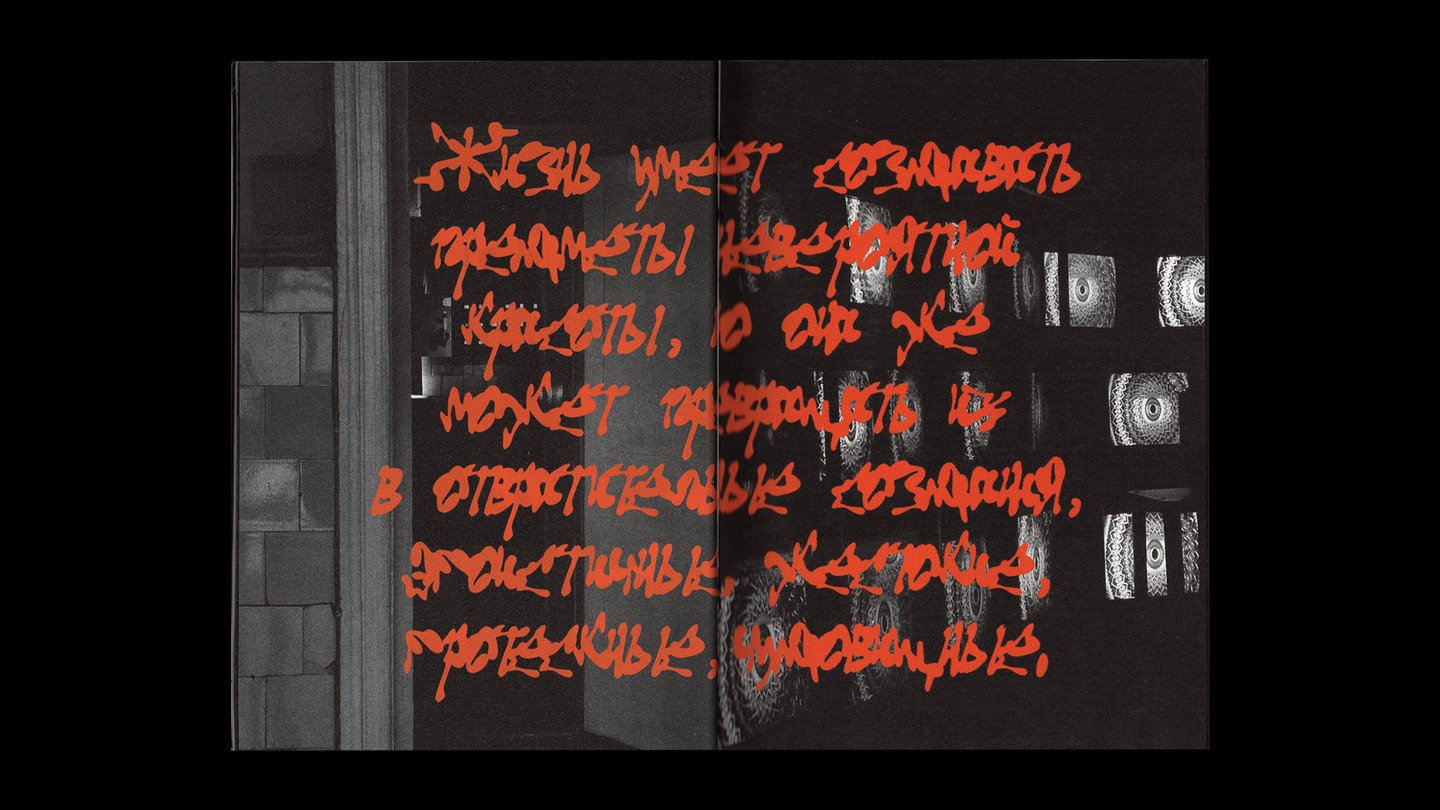 Жизнь умеет создавать
предметы невероятной
красоты, но она же
может превращать их
в отвратительные создания,
эгоистичные, жестокие,
гротескные, чудовищные,